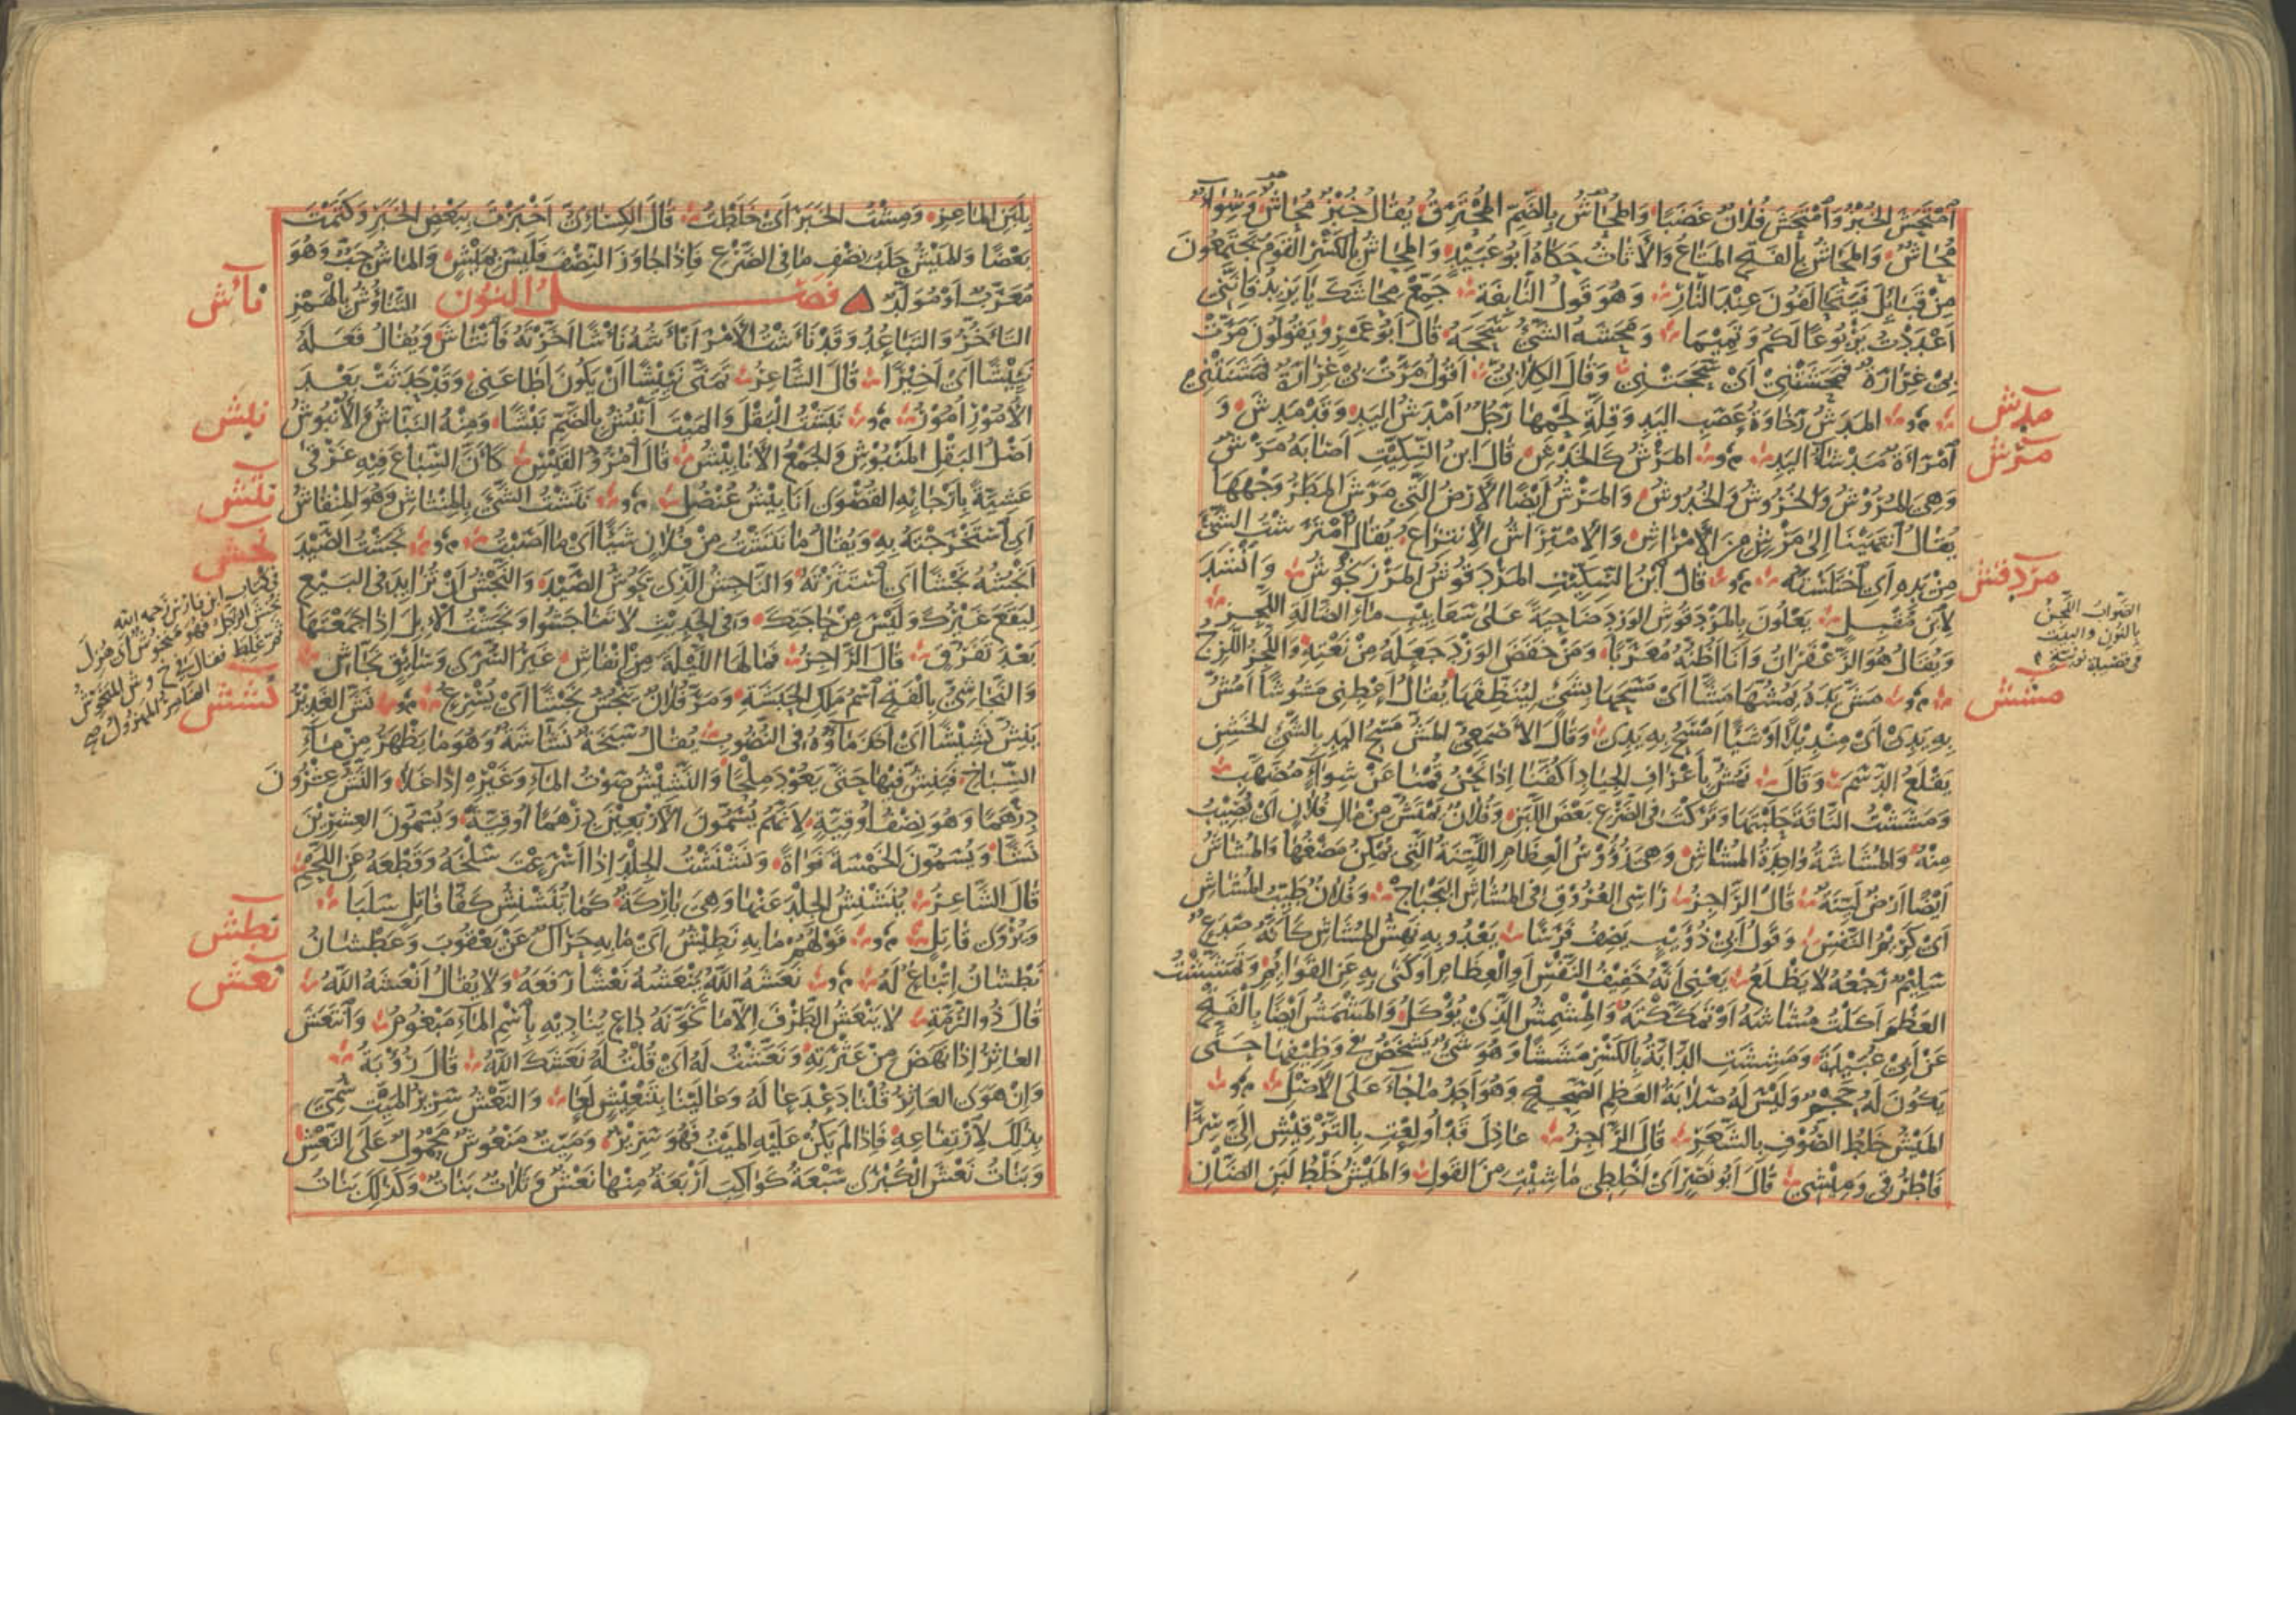 اَمْتَحَشَ الخُبْزُ وَامْتَحَشَ فُلَانٌ غَضَبًا وَالمُحَاشُ بِالضَّمِّ المُحْتَرِقُ يُقَالُ خُبْزٌ مُحَاشٌ وَشِوَاءٌ
مُحَاشٌ وَالمَحَاشُ بِالفَتْحِ المَتَاعُ وَالأَثَاثُ حَكَاهُ اَبُو عُبَيْدٍ وَالمِحَاشُ بِالكَسْرِ القَوْمُ يَجْتَمِعُونَ
مِنْ قَبَائِلَ فَيَتَحَالَفُونَ عِنْدَ النَّارِ وَهُوَ قَوْلُ النَّابِغَةِ جَمِّعْ مِحَاشَكَ يَا يَزِيدُ فَإِنَّنِي
اَعْدَدْتُ يَرْبُوعًا لَكُمْ وَتَمِيمَا وَمَحَشَهُ الشَّيْءُ سَحَجَهُ قَالَ اَبُو عَمْرٍو يَقُولُونَ مَرَّتْ
بِي غِرَارَةٌ فَمَحَشَتْنِي اَيْ سَحَجَتْنِي وَقَالَ الكِلَابِيُّ اَقُولُ مَرَّتْ بِي غِرَارَةٌ فَمَشَنَتْنِي
المَدَشُ رَخَاوَةُ عَصَبِ اليَدِ وَقِلَّةُ لَحْمِهَا رَجُلٌ اَمْدَشُ اليَدِ وَقَدْ مَدِشَ وَ
مدش
اَمْرَاَةٌ مَدْشَاءُ اليَدِ المَرْشُ كَالخَدْشِ قَالَ ابْنُ السِّكِّيتِ اَصَابَهُ مَرْشٌ
مرش
وَهِيَ المُرُوْشُ وَالخُرُوشُ وَالخُدُوشُ وَالمَرْشُ اَيْضًا الأَرْضُ الَّتِي مَرَشَ المَطَرُ وَجْهَهَا
يُقَالُ انْتَهَيْنَا إِلَى مَرْشٍ مِنَ الأَمْرَاشِ وَالاِمْتِرَاشُ الاِنْتِزَاعُ يُقَالُ امْتَرَشْتُ الشَّيْءَ
مِنْ يَدِهِ اَيْ اخْتَلَسْتُهُ قَالَ ابْنُ السِّكِّيتِ المَرْدَقُوشُ المَرْزَنْجُوشُ وَاَنْشَدَ
مردقش
لاِبْنِ مُقْبِلٍ يَعْلُونَ بِالمَرْدَقُوشِ الوَرْدِ ضَاحِيَةً عَلَى سَعَابِيبِ مَاءِ الضَّالَةِ اللَّجِزِ
الصَّوَابُ اللَّجِنُ
بِالنُّونِ وَالبَيْت
وَيُقَالُ هُوَ الزَّعْفَرَانُ وَاَنَا اَظُنُّهُ مُعَرَّبًا وَمَنْ خَفَضَ الوَرْدَ جَعَلَهُ مِنْ نَعْتِهِ وَاللَّجِزُ اللَّزِجُ
مَشَّ يَدَهُ يَمُشُّهَا مَشًّا اَيْ مَسَحَهَا بِشَيْءٍ لِيُنَظِّفَهَا يُقَالُ اَعْطِنِي مَشُوشًا اَمُشُّ
مشش
بِهِ يَدِي اَيْ مِنْدِيْلًا اَوْ شَيْئًا اَمْسَحُ بِهِ يَدِي وَقَالَ الاَصْمَعِيُّ المَشُّ مَسْحُ اليَدِ بِالشَّيْءِ الخَشِنِ
يَقْلَعُ الدَّسَمَ وَقَالَ نَمُشُّ بِاَعْرَافِ الجِيَادِ اَكُفَّنَا اِذَا نَحْنُ قُمْنَا عَنْ شِوَاءٍ مُضَهَّبِ
وَمَشَشْتُ النَّاقَةَ حَلَبْتُهَا وَتَرَكْتُ فِي الضَّرْعِ بَعْضَ اللَّبَنِ وَفُلَانٌ يَمُشُّ مِنْ مَالِ فُلَانٍ اَيْ يُصِيْبُ
مِنْهُ وَالمُشَاشَةُ وَاحِدَةُ المُشَاشِ وَهِيَ رُؤُوْسُ العِظَامِ اللَّيِّنَةُ الَّتِي يُمْكِنُ مَضْغُهَا وَالمُشَاشُ
اَيْضًا اَرْضٌ لَيِّنَةٌ قَالَ الرَّاجِزُ رَاسِي العُرُوْقِ فِي المُشَاشِ البَجْبَاجْ وَفُلَانٌ طَيِّبُ المُشَاشِ
اَيْ كَرِيْمُ النَّفْسِ وَقَوْلُ اَبِي ذُؤَيْبٍ يَصِفُ فَرَسًا يَعْدُو بِهِ نَهِشُ المُشَاشِ كَاَنَّهُ صَدَعٌ
سَلِيْمٌ رَجْعُهُ لَا يَظْلَعُ يَعْنِي اَنَّهُ خَفِيْفُ النَّفْسِ اَوِ العِظَامِ اَوْ كَنَى بِهِ عَنِ القَوَائِمِ وَتَمَشَّشْتُ
العَظْمَ اَكَلْتُ مُشَاشَهُ اَوْ تَمَكَّكْتُهُ وَالمِشْمِشُ الَّذِيْ يُؤْكَلُ وَالمَشْمَشُ اَيْضًا بِالْفَتْحِ
عَنْ اَبِي عُبَيْدَةَ وَمَشِشَتِ الدَّابَّةُ بِالكَسْرِ مَشَشًا وَهُوَ شَيْءٌ يَشْخَصُ فِي وَظِيْفِهَا حَتَّى
يَكُوْنَ لَهُ حَجْمٌ وَلَيْسَ لَهُ صَلَابَةُ العَظْمِ الصَّحِيْحِ وَهُوَ اَحَدُ مَا جَاءَ عَلَى الأَصْلِ
المَيْشُ خَلْطُ الصُّوْفِ بِالشَّعَرِ قَالَ الرَّاجِزُ عَاذِلَ قَدْ اُولِعْتِ بِالتَّرْقِيْشِ اِلَيَّ سِرًّا
فَاطْرُقِي وَمِيْشِي قَالَ اَبُو نَصْرٍ اَيْ اخْلِطِي مَا شِئْتِ مِنَ القَوْلِ وَالمَيْشُ خَلْطُ لَبَنِ الضَّأْنِ
بِلَبَنِ المَاعِزِ وَمِشْتُ الخَبَرَ اَيْ خَلَطْتُ قَالَ الكِسَائِيُّ اَخْبَرْتَ بِبَعْضِ الخَبَرِ وَكَتَمْتَ
بَعْضًا وَالمَيْشُ حَلْبُ نِصْفِ مَا فِي الضَّرْعِ فَاِذَا جَاوَزَ النِّصْفَ فَلَيْسَ بِمَيْشٍ وَالمَاشُ حَبٌّ وَهُوَ
مُعَرَّبٌ اَوْ مُوَلَّدٌ فصل النون التَّنَاؤُشُ بِالْهَمْزِ
نأش
التَّاَخُّرُ وَالتَّبَاعُدُ وَقَدْ نَأَشْتُ الأَمْرَ اَنْأَشُهُ نَأْشًا اَخَّرْتُهُ فَانْتَاَشَ وَيُقَالُ فَعَلَهُ
نَئِيْشًا اَيْ اَخِيْرًا قَالَ الشَّاعِرُ تَمَنَّى نَئِيْشًا اَنْ يَكُوْنَ اَطَاعَنِي وَقَدْ حَدَثَتْ بَعْدَ
الأُمُوْرِ اُمُوْرُ نَبَشْتُ البَقْلَ وَالمَيِّتَ اَنْبُشُ بِالضَّمِّ نَبْشًا وَمِنْهُ النَّبَّاشُ وَالأُنْبُوْشُ
نبش
اَصْلُ البَقْلِ المَنْبُوْشِ وَالجَمْعُ الأَنَابِيْشُ قَالَ امْرُؤُ القَيْسِ كَاَنَّ السِّبَاعَ فِيْهِ غَرْقَى
عَشِيَّةً بِاَرْجَائِهِ القُصْوَى اَنَابِيْشُ عُنْصُلِ نَتَشْتُ الشَّيْءَ بِالمِنْتَاشِ وَهُوَ المِنْقَاشُ
نتش
اَيْ اسْتَخْرَجْتُهُ بِهِ وَيُقَالُ مَا نَتَشْتُ مِنْ فُلَانٍ شَيْئًا اَيْ مَا اَصَبْتُ نَجَشْتُ الصَّيْدَ
نجش
اَنْجُشُهُ نَجْشًا اَيْ اسْتَثَرْتُهُ وَالنَّاجِشُ الَّذِي يَحُوْشُ الصَّيْدَ وَالنَّجْشُ اَنْ تُزَايِدَ فِي البَيْعِ
لِيَقَعَ غَيْرُكَ وَلَيْسَ مِنْ حَاجَتِكَ وَفِي الحَدِيْثِ لَا تَنَاجَشُوا وَنَجَشْتُ الاِبِلَ اِذَا جَمَعْتَهَا
بَعْدَ تَفَرُّقٍ قَالَ الرَّاجِزُ فَمَا لَهَا اللَّيْلَةَ مِنْ اِنْفَاشِ غَيْرَ السُّرَى وَسَائِقٍ نَجَّاشِ
وَالنَّجَاشِيُّ بِالْفَتْحِ اسْمُ مَلِكِ الحَبَشَةِ وَمَرَّ فُلَانٌ يَنْجُشُ نَجْشًا اَيْ يُسْرِعُ نَشَّ الغَدِيْرُ
نشش
فِي كِتَابِ ابْنِ فَارِسٍ رَحِمَهُ اللهُ
يَنِشُّ نَشِيْشًا اَيْ اَخَذَ مَاؤُهُ فِي النُّضُوْبِ يُقَالُ سَبَخَةٌ نَشَّاشَةٌ وَهُوَ مَا يَظْهَرُ مِنْ مَاءِ
السِّبَاخِ فَيَنِشُّ فِيْهَا حَتَّى يَعُوْدَ مِلْحًا وَالنَّشِيْشُ صَوْتُ المَاءِ وَغَيْرِهِ اِذَا غَلَا وَالنَّشُّ عِشْرُوْنَ
دِرْهَمًا وَهُوَ نِصْفُ اُوْقِيَّةٍ لِاَنَّهُمْ يُسَمُّوْنَ الأَرْبَعِيْنَ دِرْهَمًا اُوْقِيَّةً وَيُسَمُّوْنَ العِشْرِيْنَ
نَشًّا وَيُسَمُّوْنَ الخَمْسَةَ نَوَاةً وَنَشْنَشْتُ الجِلْدَ اِذَا اَسْرَعْتَ سَلْخَهُ وَقَطْعَهُ عَنِ اللَّحْمِ
قَالَ الشَّاعِرُ يُنَشْنِشُ الجِلْدَ عَنْهَا وَهِيَ بَارِكَةٌ كَمَا يُنَشْنِشُ كَفَّا فَاتِلٍ سَلَبَا
وَيُرْوَى قَاتِلٍ قَوْلُهُمْ مَا بِهِ نَطِيْشٌ اَيْ مَا بِهِ حَرَاكٌ عَنْ يَعْقُوْبَ وَعَطْشَانُ
نطش
نَطْشَانُ اِتْبَاعٌ لَهُ نَعَشَهُ اللهُ يَنْعَشُهُ نَعْشًا رَفَعَهُ وَلَا يُقَالُ اَنْعَشَهُ اللهُ
نعش
قَالَ ذُو الرُّمَّةِ لَا يَنْعَشُ الطَّرْفَ اِلَّا مَا تَخَوَّنَهُ دَاعٍ يُنَادِيْهِ بِاسْمِ المَاءِ مَبْغُوْمُ وَانْتَعَشَ
العَاثِرُ اِذَا نَهَضَ مِنْ عَثْرَتِهِ وَنَعَّشْتُ لَهُ اَيْ قُلْتُ لَهُ نَعَشَكَ اللهُ قَالَ رُؤْبَةُ
وَاِنْ هَوَى العَاثِرُ قُلْنَا دَعْدَعَا لَهُ وَعَالَيْنَا بِتَنْعِيْشٍ لَعَا وَالنَّعْشُ سَرِيْرُ المَيِّتِ سُمِّيَ
بِذٰلِكَ لِاِرْتِفَاعِهِ فَاِذَا لَمْ يَكُنْ عَلَيْهِ المَيِّتُ فَهُوَ سَرِيْرٌ وَمَيِّتٌ مَنْعُوْشٌ مَحْمُوْلٌ عَلَى النَّعْشِ
وَبَنَاتُ نَعْشَ الْكُبْرَى سَبْعَةُ كَوَاكِبَ اَرْبَعَةٌ مِنْهَا نَعْشٌ وَثَلَاثٌ بَنَاتٌ وَكَذٰلِكَ بَنَاتُ